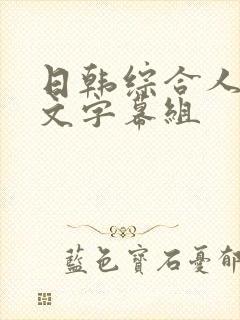 日韩综合人
文字幕组
藍色寶石憂郁